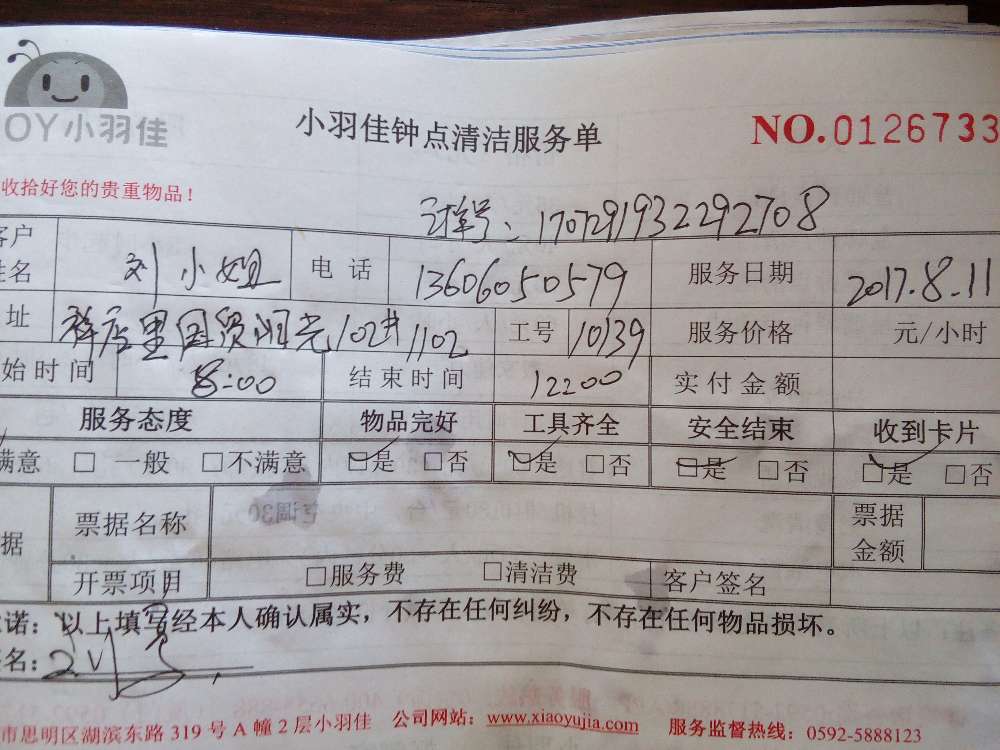 OY小羽佳
小羽佳钟点清洁服务单
NO.0126733
收拾好您的贵重物品！
订单号：1707291932292708
客户姓名 刘小姐 电话 13606050579 服务日期 2017.8.11
址 祥店里国贸阳光102#1102 工号 10139 服务价格 元/小时
始时间 8:00 结束时间 12:00 实付金额
服务态度 物品完好 工具齐全 安全结束 收到卡片
满意 □一般 □不满意 □是 □否 □是 □否 □是 □否 □是 □否
据 票据名称 票据金额
开票项目 □服务费 □清洁费 客户签名
诺：以上填写经本人确认属实，不存在任何纠纷，不存在任何物品损坏。
名：
市思明区湖滨东路 319 号 A 幢 2 层小羽佳 公司网站：www.xiaoyujia.com 服务监督热线：0592-5888123